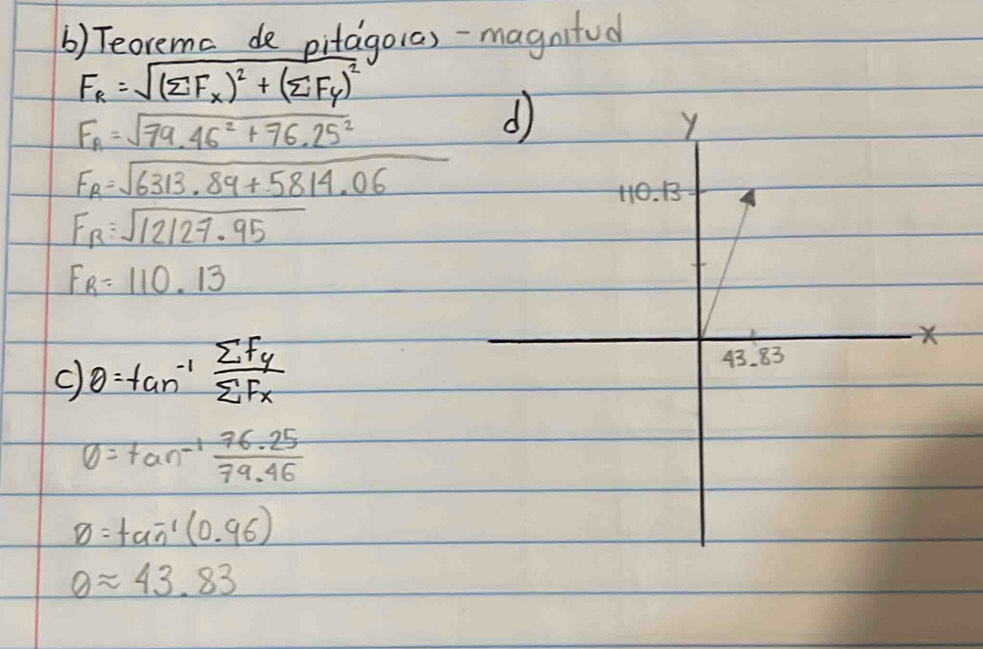 b) Teorema de pitágoras - magnitud
F_R = √((ΣF_x)² + (ΣF_y)²)
F_R = √(79.46² + 76.25²)
F_R = √(6313.89 + 5814.06)
F_R = √(12127.95)
F_R = 110.13
c) θ = tan⁻¹ ΣF_y / ΣF_x
θ = tan⁻¹ 76.25 / 79.46
θ = tan⁻¹ (0.96)
θ ≈ 43.83
d)
Y
110.13
X
43.83